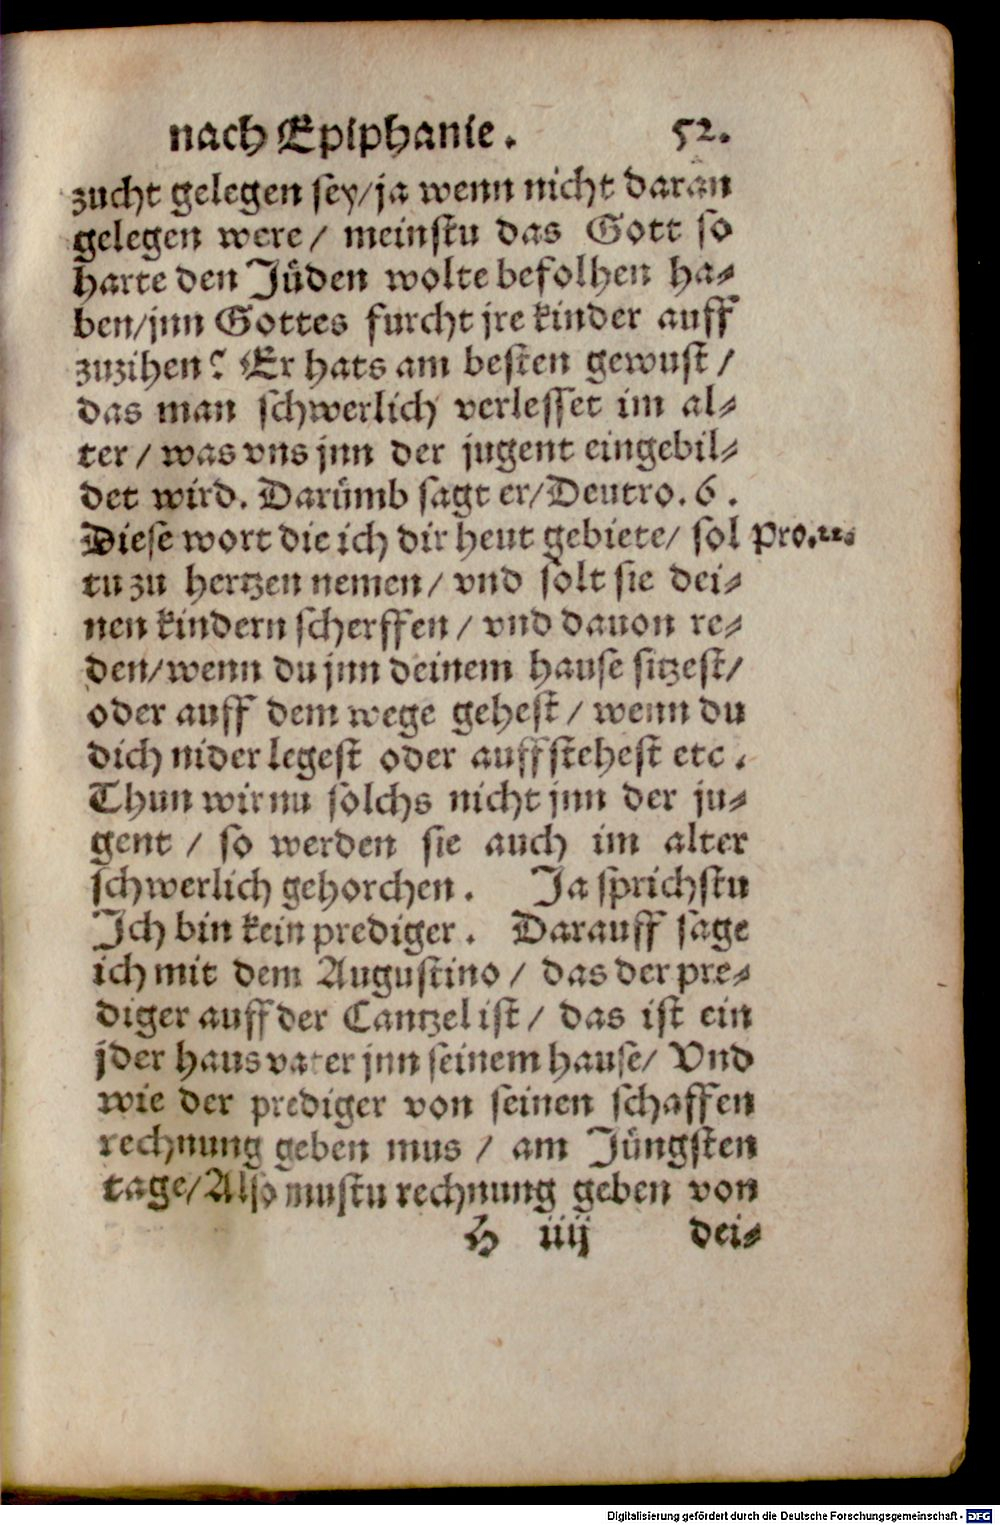 nach Epiphanie. 52.
zucht gelegen sey/ja wenn nicht daran
gelegen were/ meinstu das Gott so
harte den Jüden wolte befolhen ha⸗
ben/jnn Gottes furcht jre kinder auff
zuzihen? Er hats am besten gewust/
das man schwerlich verlesset im al⸗
ter/ was vns jnn der jugent eingebil⸗
det wird. Darümb sagt er/Deutro. 6.
Diese wort die ich dir heut gebiete/ sol Pro.22.
tu zu hertzen nemen/ vnd solt sie dei⸗
nen kindern scherffen/ vnd dauon re⸗
den/wenn du jnn deinem hause sitzest/
oder auff dem wege gehest/ wenn du
dich nider legest oder auffstehest etc.
Thun wir nu solchs nicht jnn der ju⸗
gent/ so werden sie auch im alter
schwerlich gehorchen. Ja sprichstu
Ich bin kein prediger. Darauff sage
ich mit dem Augustino/ das der pre⸗
diger auff der Cantzel ist/ das ist ein
jder haus vater jnn seinem hause/ Vnd
wie der prediger von seinen schaffen
rechnung geben mus/ am Jüngsten
tage/Also mustu rechnung geben von
H iiij dei⸗
Digitalisierung gefördert durch die Deutsche Forschungsgemeinschaft - DFG